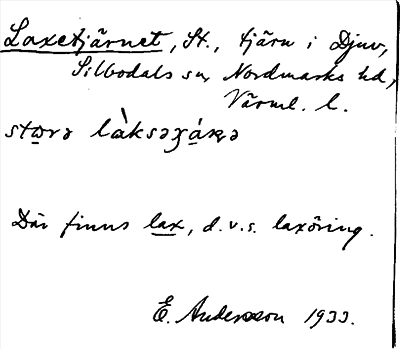 Laxetjärnet, St., tjärn i Djuv,
Silbodals sn, Nordmarks hd,
Värml. l.
Där finns lax, d.v.s. laxöring.
E. Andersson 1933.